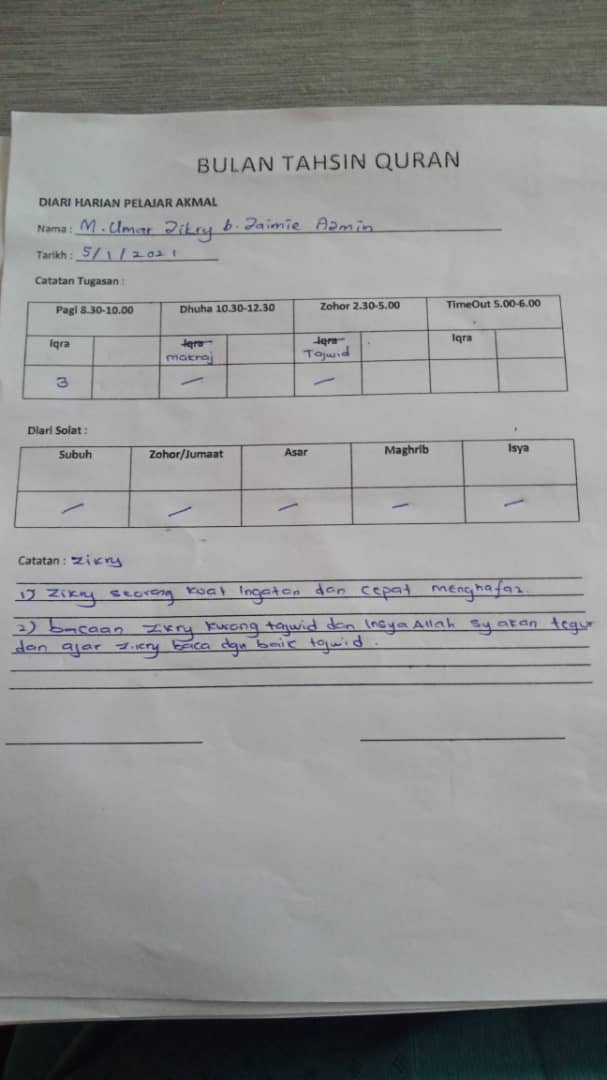 BULAN TAHSIN QURAN
DIARI HARIAN PELAJAR AKMAL
Nama : M. Umar Zikry b. Zaimie Azmin
Tarikh : 5/1/2021
Catatan Tugasan :
Pagi 8.30-10.00 Dhuha 10.30-12.30 Zohor 2.30-5.00 TimeOut 5.00-6.00
Iqra Iqra Iqra Iqra
makraj Tajwid
3 / /
Diari Solat :
Subuh Zohor/Jumaat Asar Maghrib Isya
/ / / / /
Catatan : Zikry
1) Zikry seorang kuat Ingatan dan cepat menghafaz.
2) bacaan Zikry kurang tajwid dan Insya Allah sy akan tegur
dan ajar Zikry baca dgn baik tajwid.